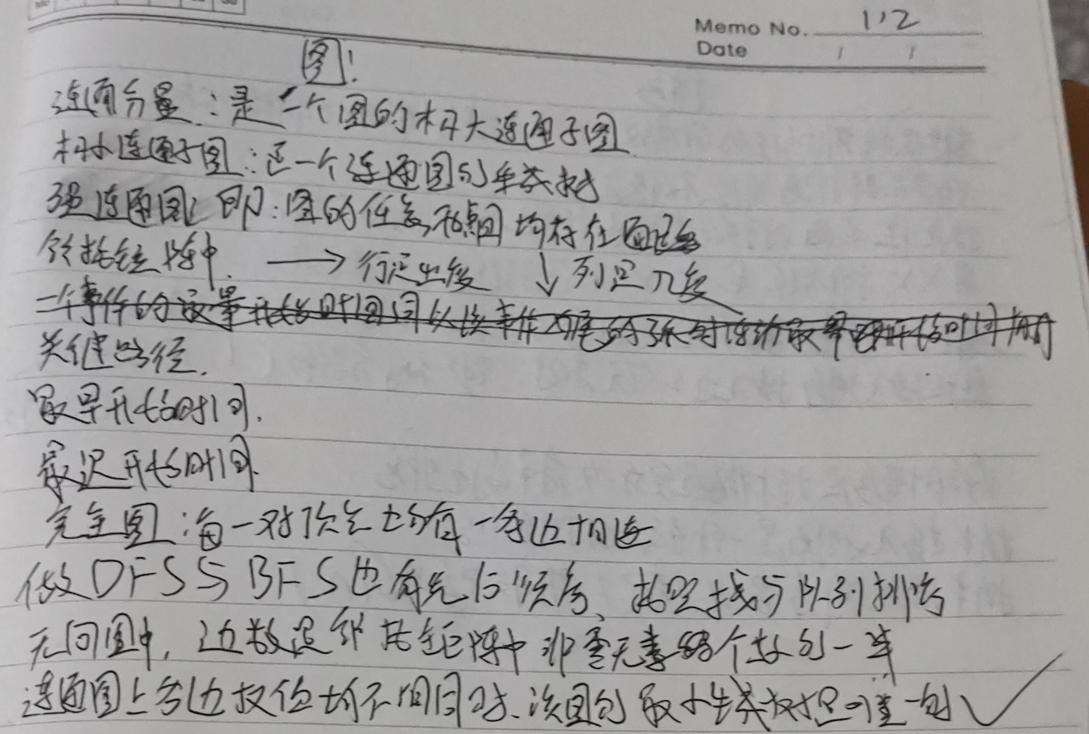 Memo No. 1'2
Date / /
图!
连通分量：是一个图的极大连通子图
极小连通子图：是一个连通图的生成树
强连通图：即：图的任意两点间均存在通路
邻接矩阵中. → 行是出度 ↓ 列是入度
一个事件的最早开始时间同以该事件为尾的弧的活动最早开始时间相同
关键路径.
最早开始时间.
最迟开始时间.
完全图：每一对顶点均有一条边相连
做DFS与BFS也有先后顺序、按照栈与队列排序
无向图中，边数是邻接矩阵中非零元素个数的一半
连通图上各边权值均不相同时、该图的最小生成树是唯一的 ✓